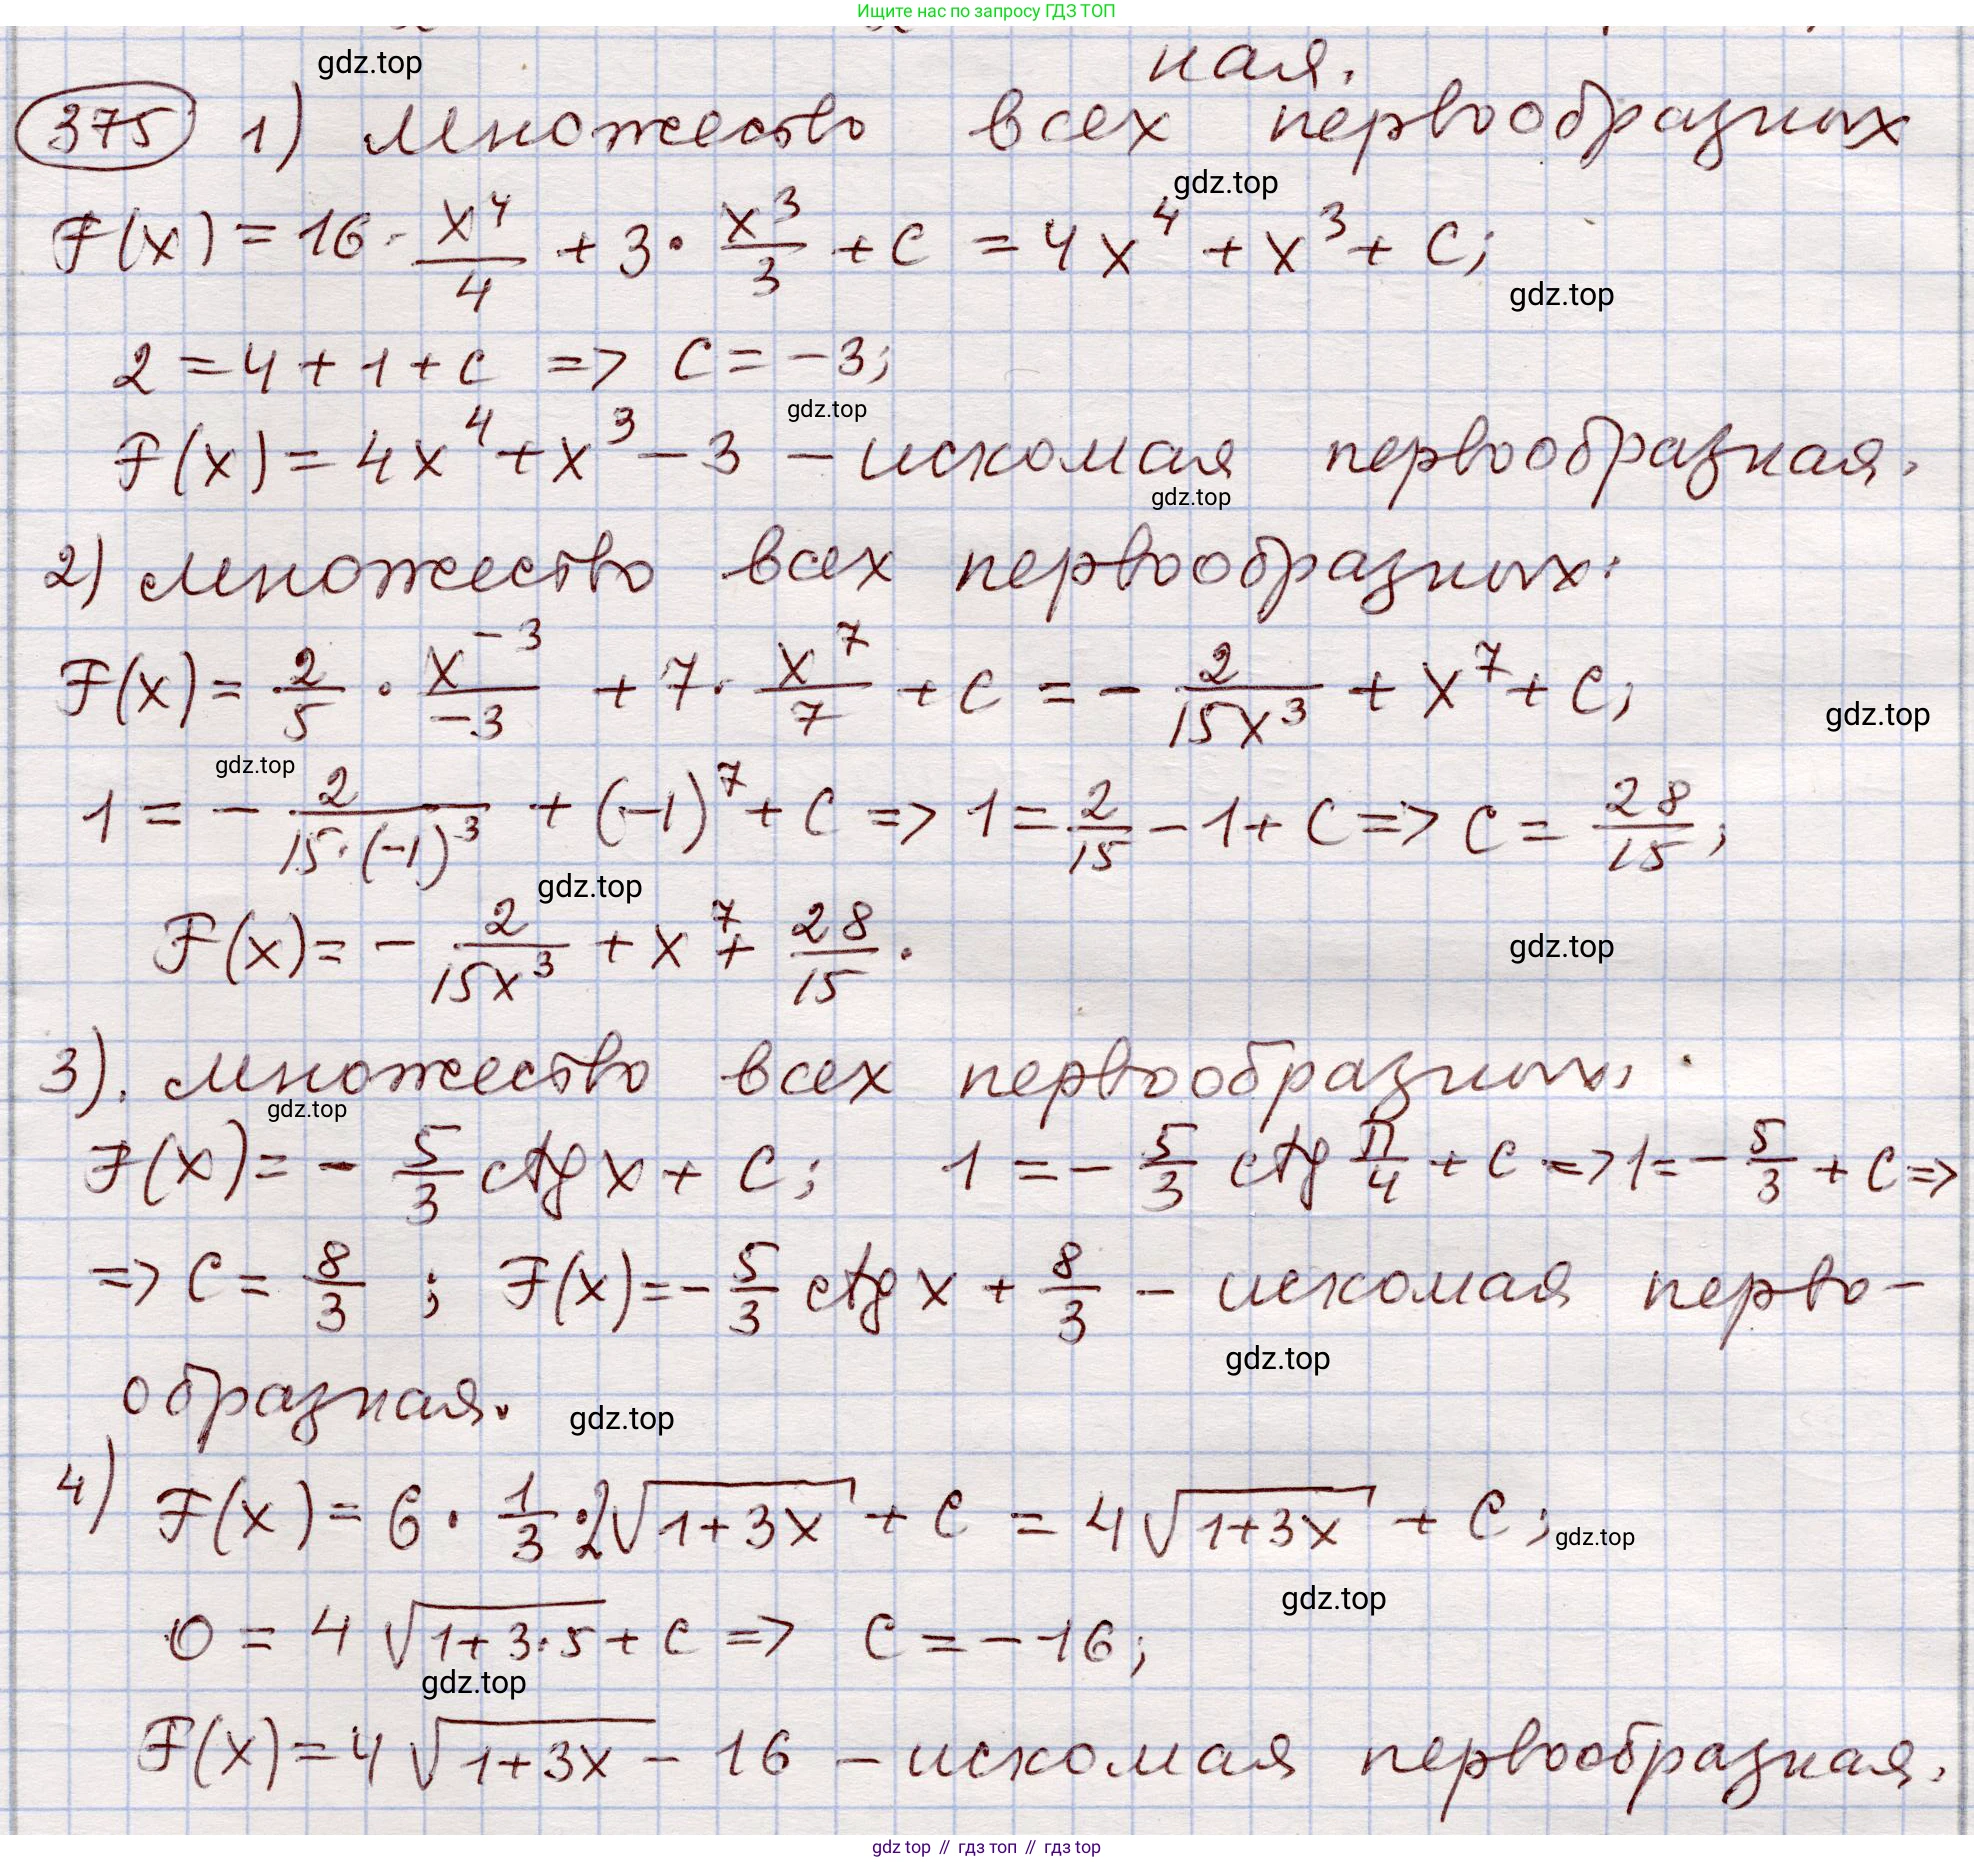 Ищите нас по запросу ГДЗ ТОП
gdz.top
ная.
375 1) множество всех первообразных
gdz.top
F(x) = 16 · x⁴/4 + 3 · x³/3 + C = 4x⁴ + x³ + C;
gdz.top
2 = 4 + 1 + C => C = -3;
gdz.top
F(x) = 4x⁴ + x³ - 3 - искомая первообразная.
gdz.top
2) множество всех первообразных:
F(x) = 2/5 · x⁻³/-3 + 7 · x⁷/7 + C = - 2/15x³ + x⁷ + C;
gdz.top
gdz.top
1 = - 2/15·(-1)³ + (-1)⁷ + C => 1 = 2/15 - 1 + C => C = 28/15;
gdz.top
F(x) = - 2/15x³ + x⁷ + 28/15.
gdz.top
3). множество всех первообразных:
gdz.top
F(x) = - 5/3 ctg x + C; 1 = - 5/3 ctg π/4 + C => 1 = - 5/3 + C =>
=> C = 8/3; F(x) = - 5/3 ctg x + 8/3 - искомая перво-
gdz.top
образная.
gdz.top
4) F(x) = 6 · 1/3 · 2√(1+3x) + C = 4√(1+3x) + C;
gdz.top
gdz.top
0 = 4√(1+3·5) + C => C = -16;
gdz.top
F(x) = 4√(1+3x) - 16 - искомая первообразная.
gdz top // гдз топ // гдз top